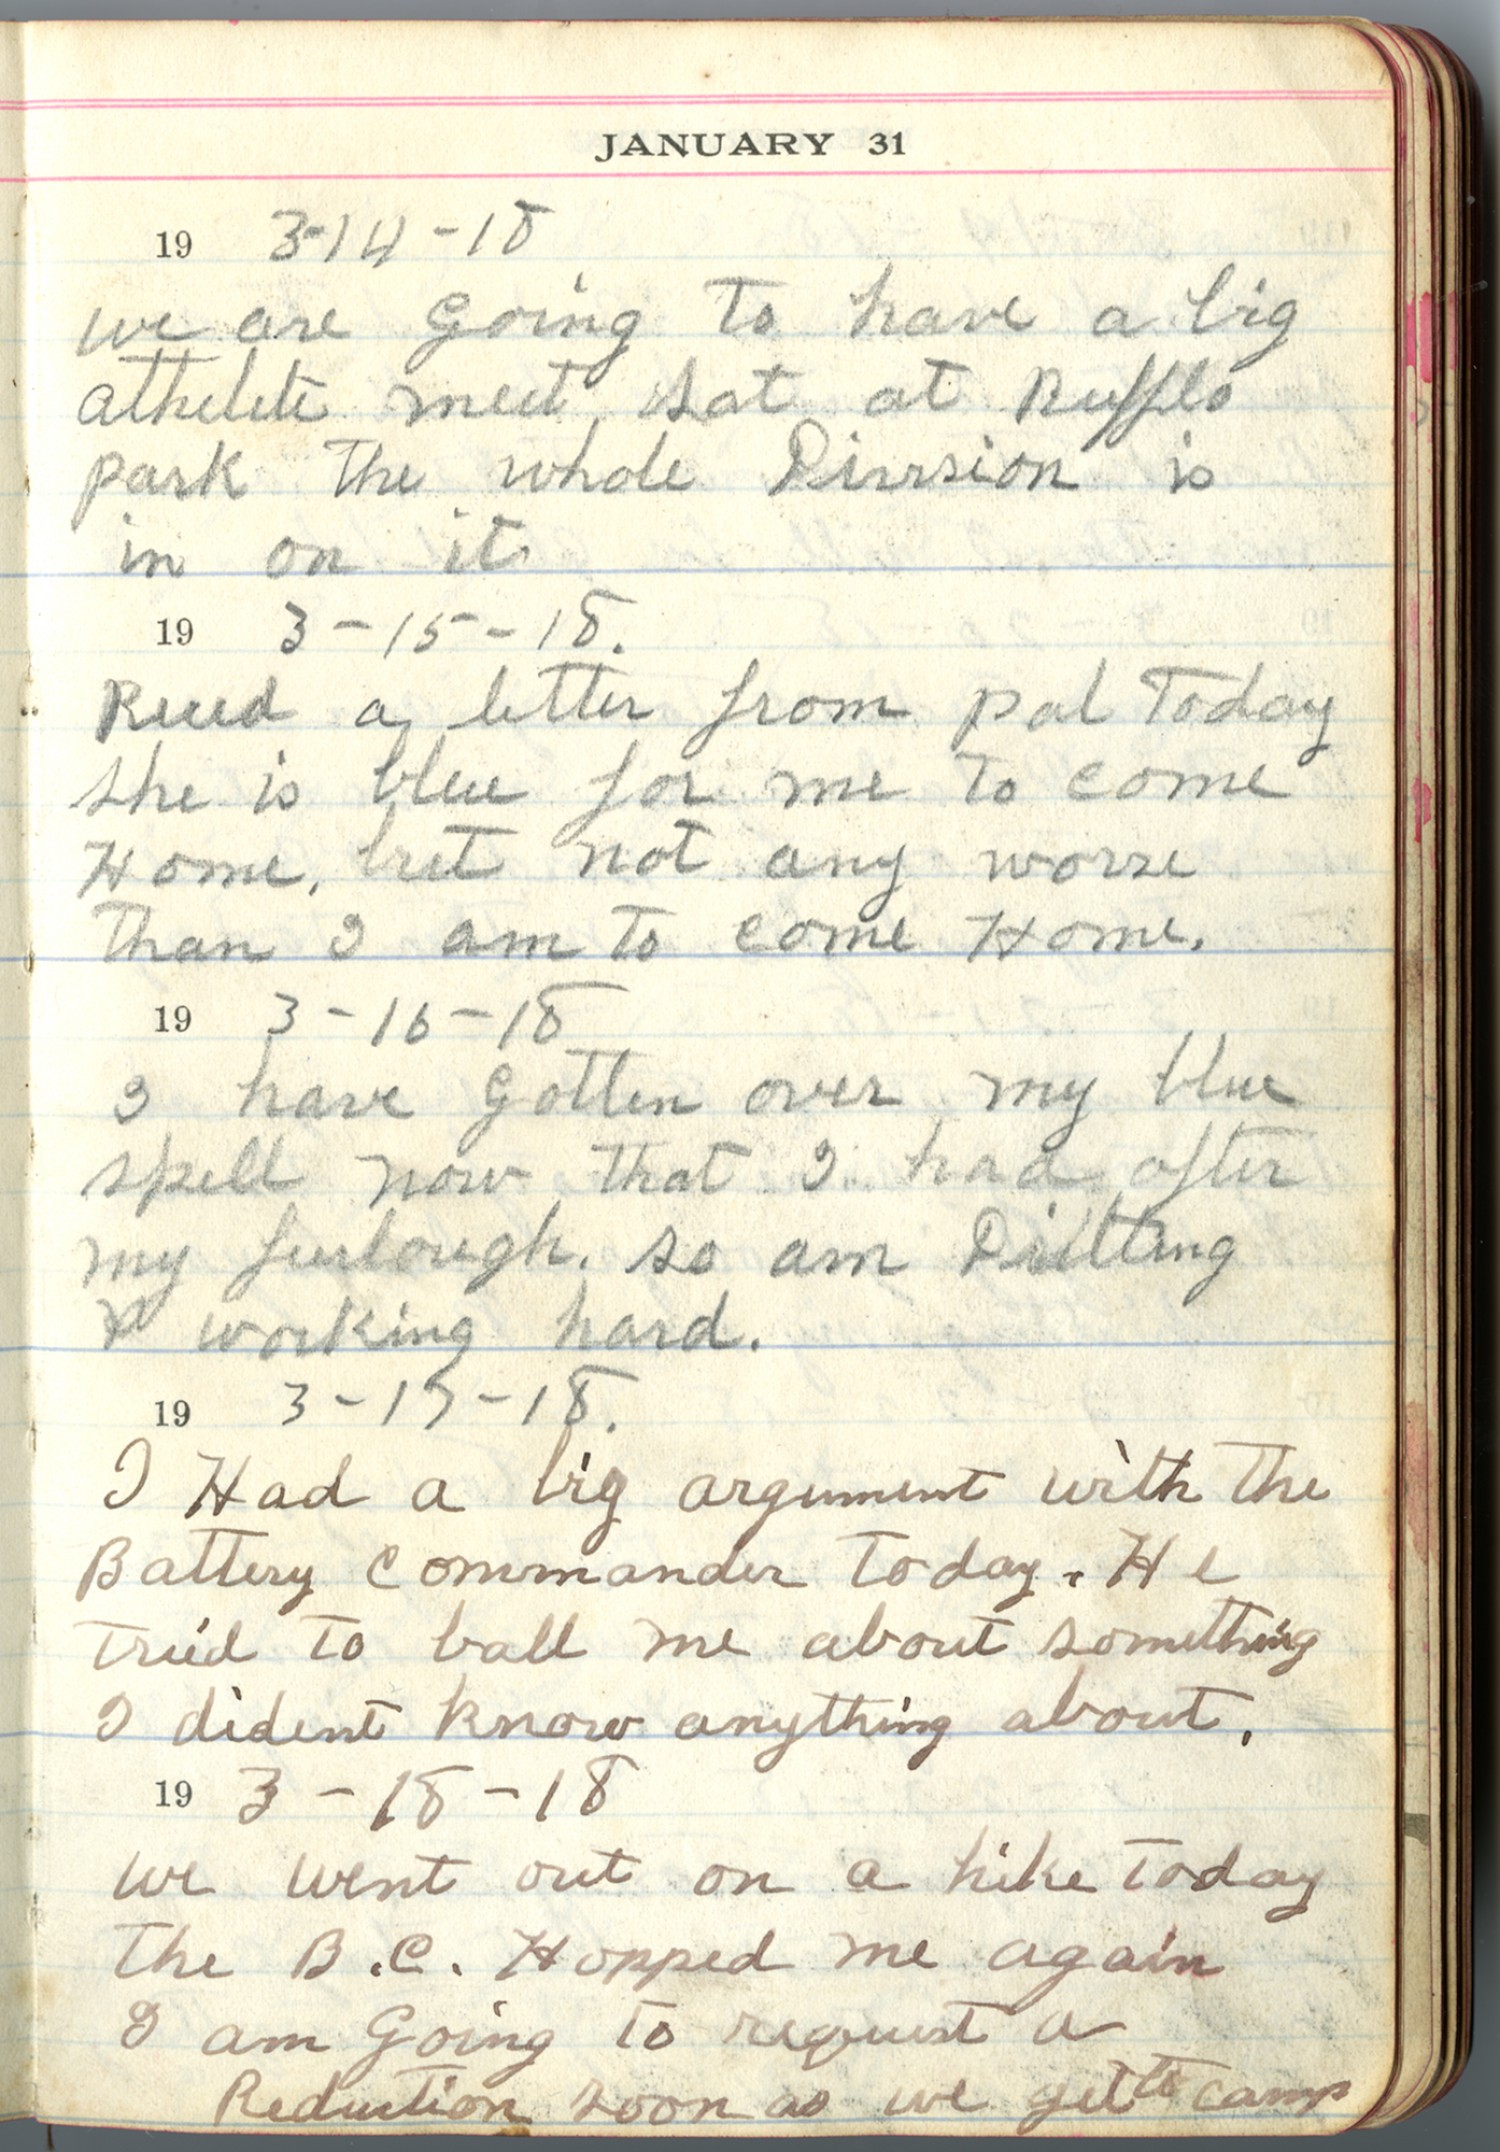 JANUARY 31
19 3-14-18
we are Going to have a big
athelete meet sat at Rufflo
park the whole Division is
in on it
19 3-15-18.
Recd a letter from pal Today
she is blue for me to come
Home, but not any worse
than I am to come Home.
19 3-16-18
I have Gotten over my blue
spell now that I had after
my furlough. so am Drilling
& working hard.
19 3-17-18.
I Had a big argument with the
Battery Commander Today. He
tried to ball me about something
I dident know anything about.
19 3-18-18
we went out on a hike Today
the B.C. Hopped me again
I am Going to request a
Reduction soon as we get to camp